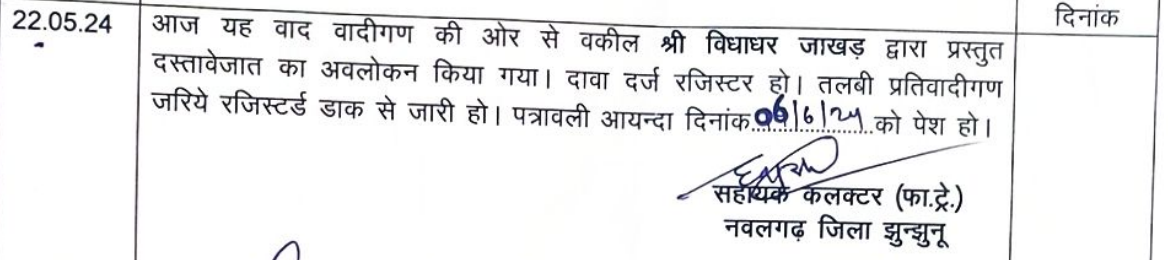 दिनांक
22.05.24 आज यह वाद वादीगण की ओर से वकील श्री विधाधर जाखड़ द्वारा प्रस्तुत
दस्तावेजात का अवलोकन किया गया। दावा दर्ज रजिस्टर हो। तलबी प्रतिवादीगण
जरिये रजिस्टर्ड डाक से जारी हो। पत्रावली आयन्दा दिनांक 06/6/24 को पेश हो।
सहायक कलक्टर (फा.ट्रे.)
नवलगढ़ जिला झुन्झुनू